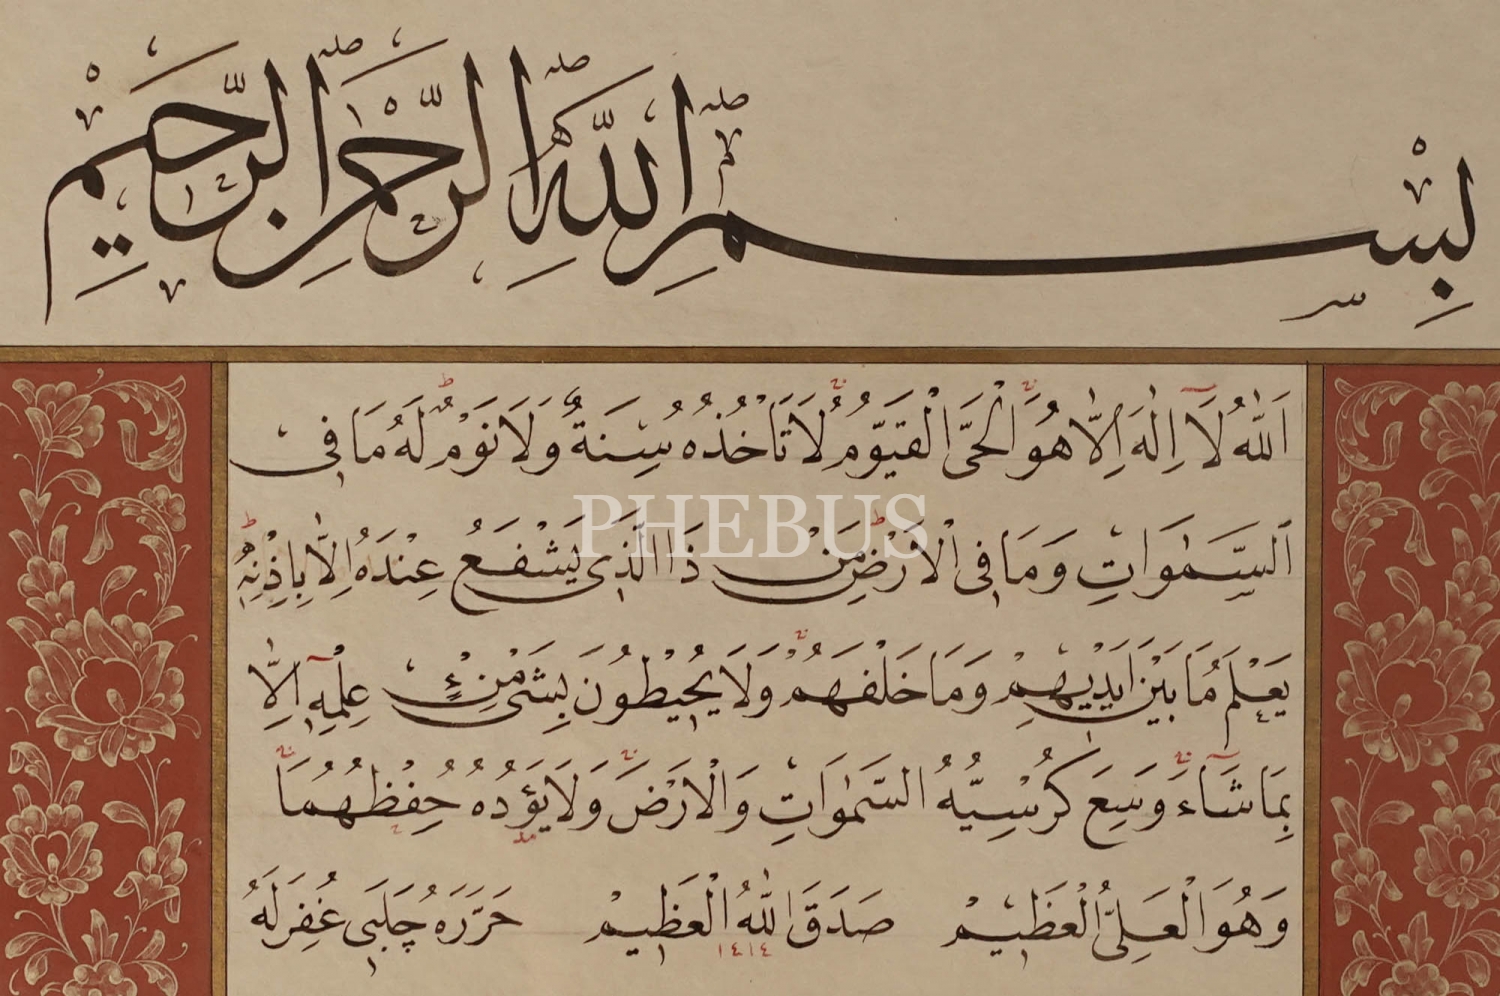 بِسْمِ اللّٰهِ الرَّحْمٰنِ الرَّحِيمِ
اَللّٰهُ لَٓا اِلٰهَ اِلَّا هُوَ الْحَىُّ الْقَيُّومُ لَا تَاْخُذُهُ سِنَةٌ وَلَا نَوْمٌ لَهُ مَا فِى
السَّمٰوَاتِ وَمَا فِى الْاَرْضِ مَنْ ذَا الَّذِى يَشْفَعُ عِنْدَهُ اِلَّا بِاِذْنِهِ
يَعْلَمُ مَا بَيْنَ اَيْدِيهِمْ وَمَا خَلْفَهُمْ وَلَا يُحِيطُونَ بِشَىْءٍ مِنْ عِلْمِهِٓ اِلَّا
بِمَا شَٓاءَ وَسِعَ كُرْسِيُّهُ السَّمٰوَاتِ وَالْاَرْضَ وَلَا يَؤُدُهُ حِفْظُهُمَا
وَهُوَ الْعَلِىُّ الْعَظِيمْ صَدَقَ اللّٰهُ الْعَظِيمْ حَرَّرَهُ چَلَبِى غُفِرَ لَهُ
١٤١٤
PHEBUS